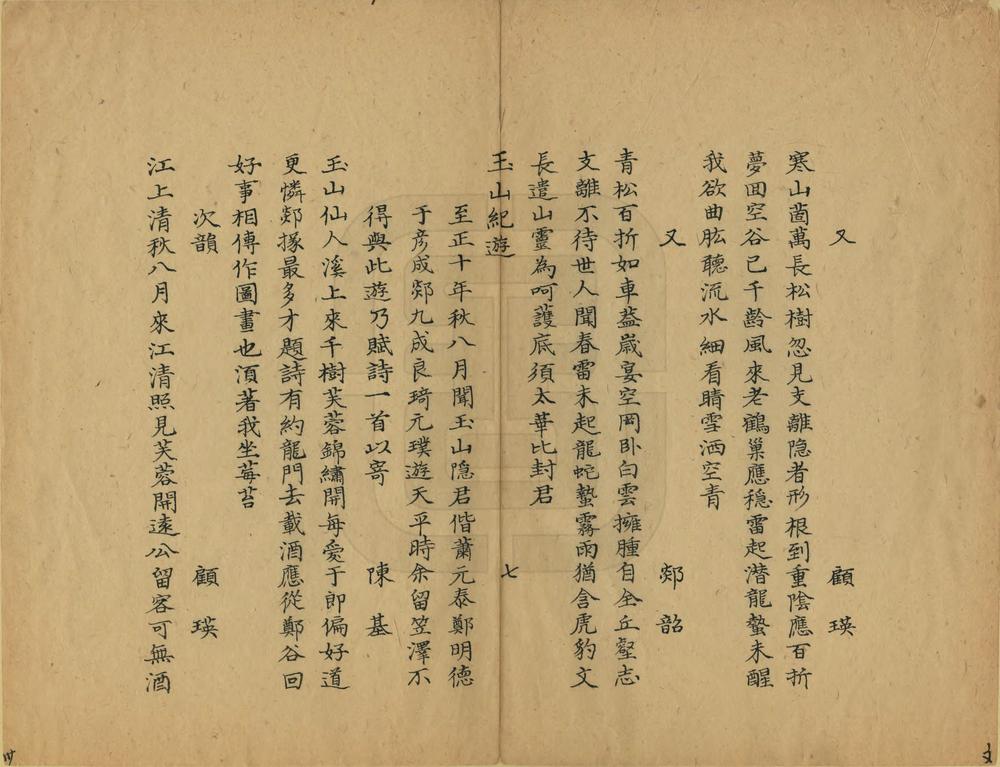 又 顧瑛
寒山箇萬長松樹忽見支離隐者形根到重陰應百折
夢回空谷已千齡風來老鶴巢應穏雷起潜龍蟄未醒
我欲曲肱聽流水細看晴雪洒空青
又 郯韶
青松百折如車葢歳宴空岡卧白雲擁腫自全丘壑志
支離不待世人聞春雷未起龍蛇蟄霧雨猶含虎豹文
長遣山靈為呵護底須太華比封君
玉山紀遊 七
至正十年秋八月聞玉山隐君偕蕭元泰鄭明德
于彦成郯九成良琦元璞遊天平時余留笠澤不
得與此遊乃賦詩一首以寄 陳基
玉山仙人溪上來千樹芙蓉錦繡開每愛于郎偏好道
更憐郯掾最多才題詩有約龍門去載酒應從鄭谷回
好事相傳作圖畫也須著我坐莓苔
次韻 顧瑛
江上清秋八月來江清照見芙蓉開遠公留客可無酒